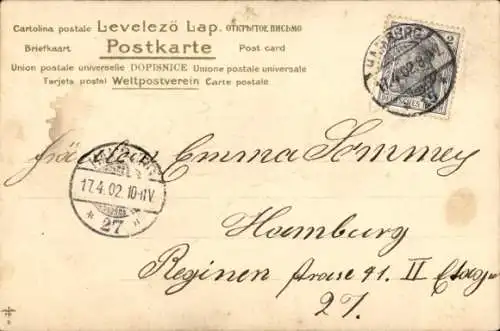 Cartolina postale Levelezö Lap. ОТКРЫТОЕ ПИСЬМО
Briefkaart Postkarte Post card
Union postale universelle DOPISNICE Unione postale universale
Tarjeta postel Weltpostverein Carte postale
HAMBURG
17.4.02.
2
HAMBURG
17.4.02.10-11V.
* 27 *
Emma Sommey
Hamburg
Reginen strasse 41. II Etage
27.